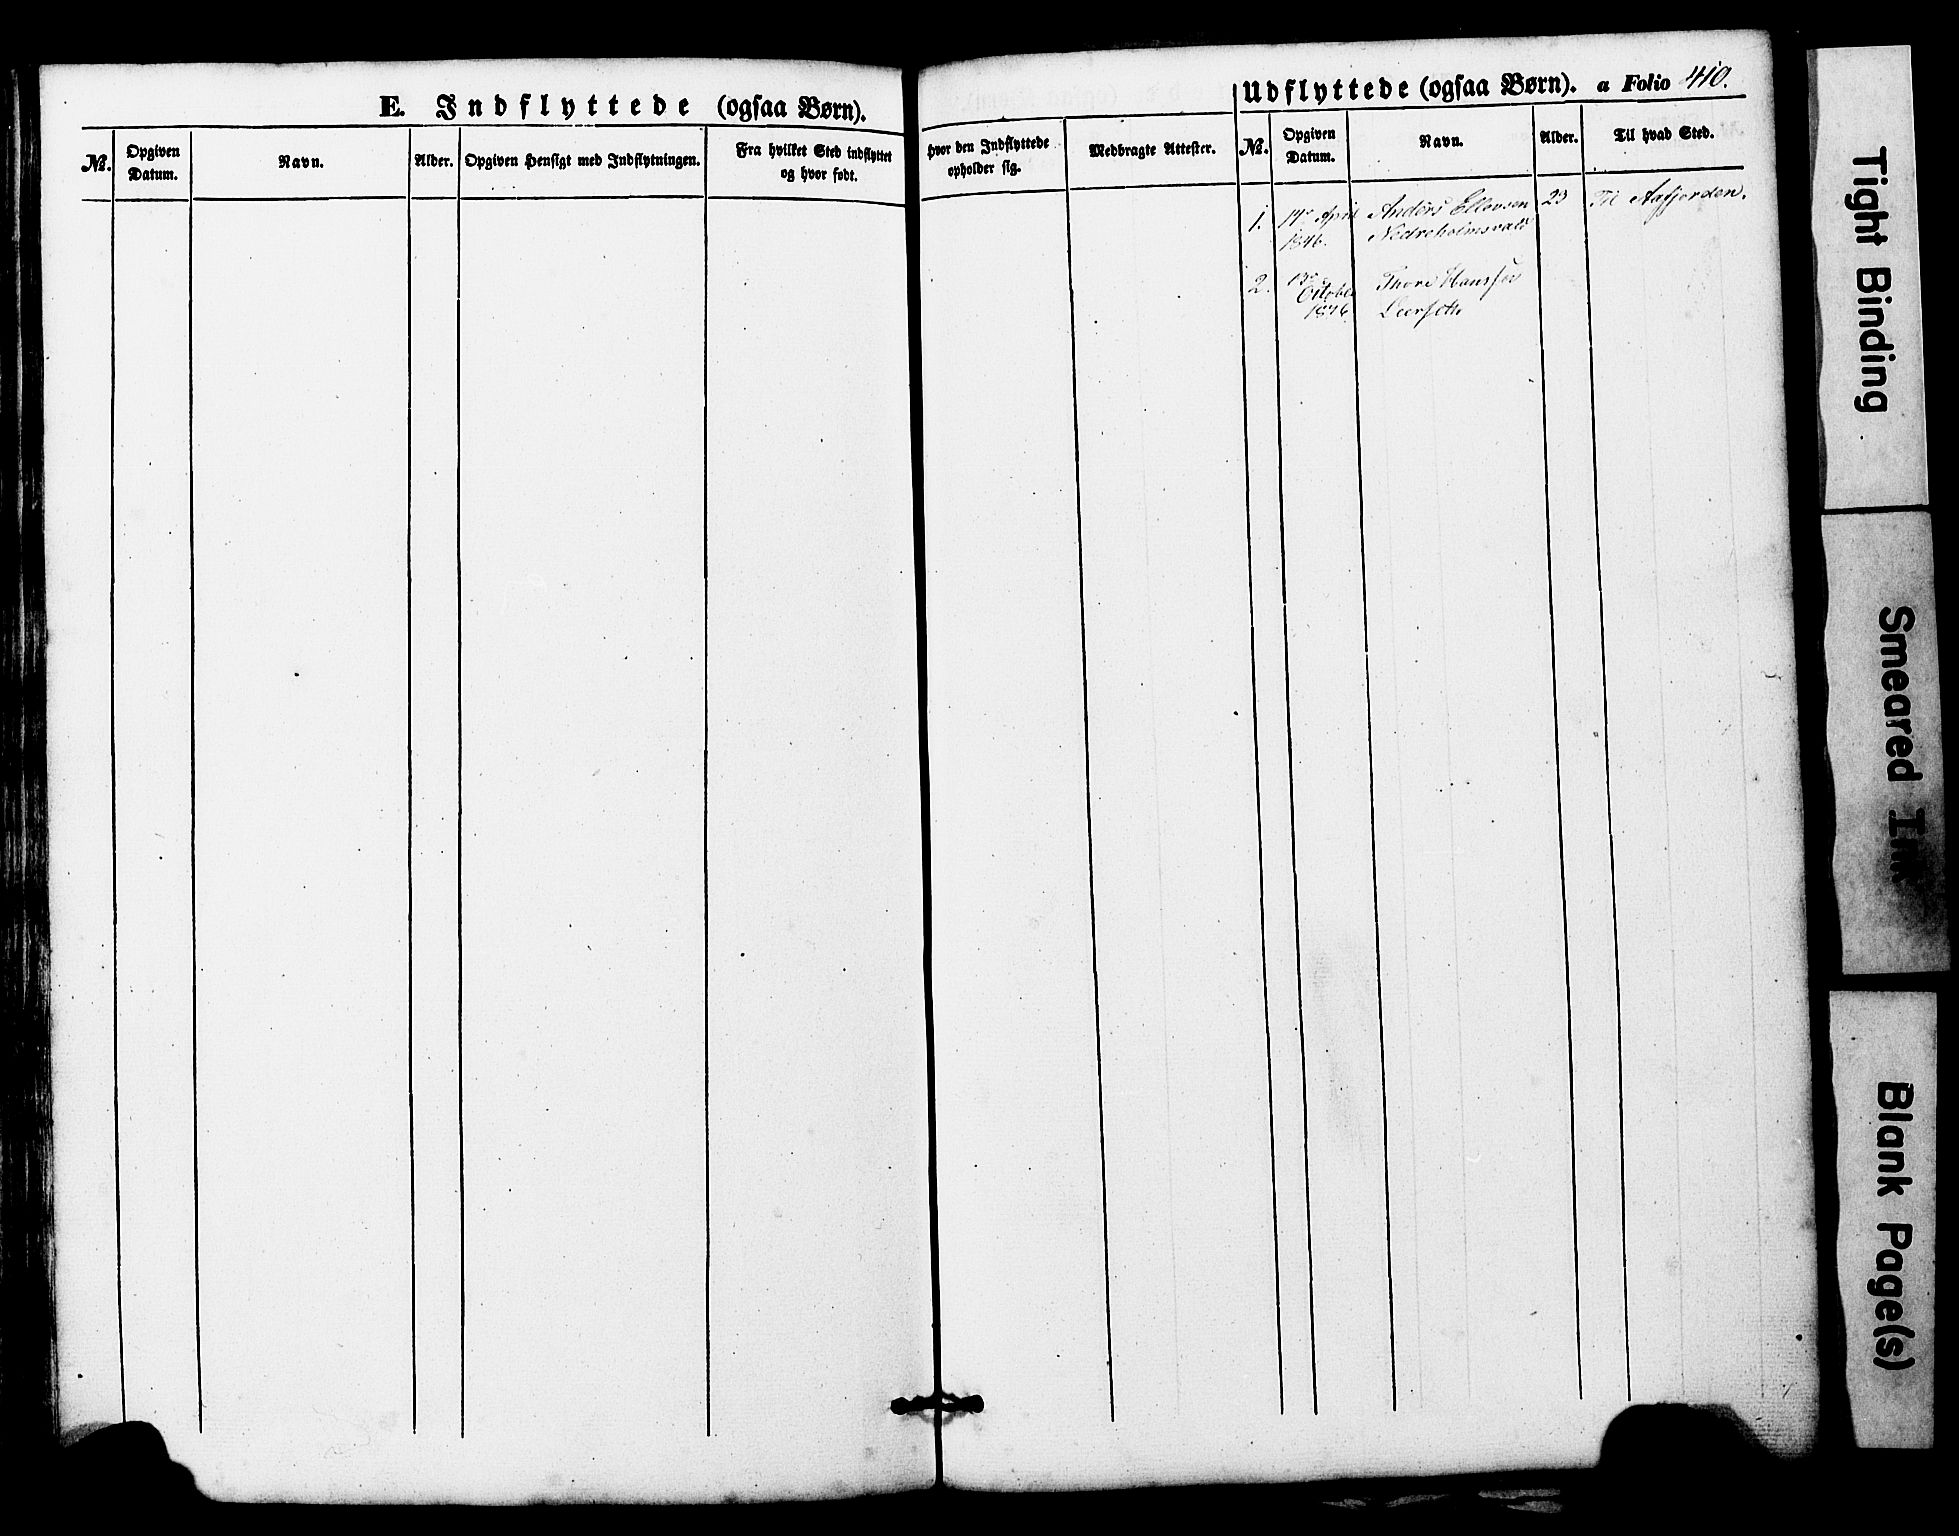 E. Indflyttede (ogsaa Børn).
№.
Opgiven
Datum.
Navn.
Alder.
Opgiven Hensigt med Indflytningen.
Fra hvilket Sted indflyttet
og hvor født.
Hvor den Indflyttede
opholder sig.
Medbragte Attester.
Udflyttede (ogsaa Børn). a Folio 410.
№.
Opgiven
Datum.
Navn.
Alder.
Til hvad Sted.
1. April Anders Ellevsen 23 Til Aafjorden.
1846.
2. Thore
October
1846.
Tight Binding
Smeared Ink
Blank Page(s)